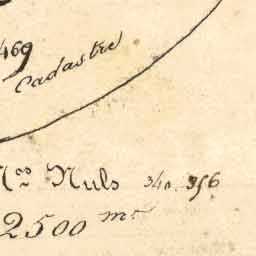 469
Cadastre
Nos Nuls 340. 356
2500 mc